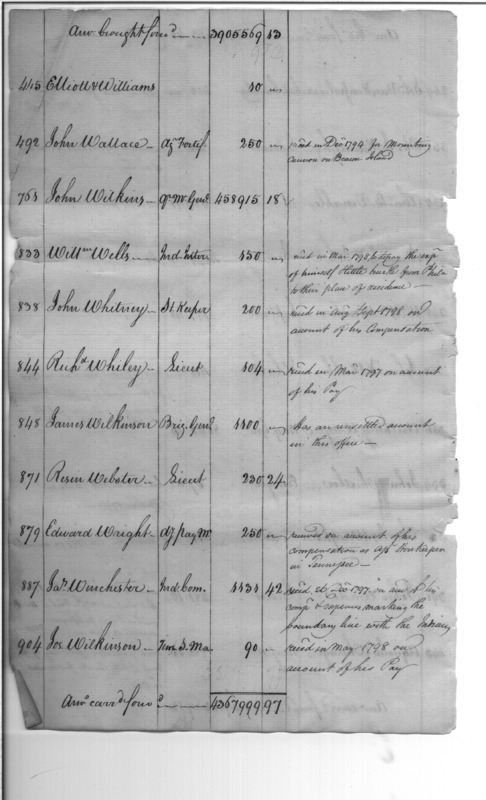 Amo. brought forwd. 3905569 13
445 Elliott & Williams 10 "
492 John Wallace Ag. Fortif. 250 " recd in Decr 1794 for Mounting
Cannon on Beacon Island
765 John Wilkins Qr. Mr. Genl. 458915 18
833 Willm. Wells Ind. Inter. 450 " recd in Mar 1798 to defray the exps
of himself & little turtle from Phila
to their place of residence
838 John Whitney St. Keeper 200 " recd in Aug & Sept 1798 on
account of his Compensation
844 Richd. Whiley Lieut 104 " recd in Mar 1797 on account
of his Pay
848 James Wilkinson Brig. Genl. 1400 " has an unsettled account
in this office
871 Resin Webster Lieut 230 24
879 Edward Wright Pay Mr. 250 " received on account of his
compensation as Asst. Storekeeper
in Tennessee
887 Jas. Winchester Ind. Com. 1131 42 recd Decr 1797 on acct of his
comp. & expenses marking the
boundary line with the Indians
904 Jos. Wilkinson 90 " recd in May 1798 on
account of his Pay
Amo. carrd. forwd. 4367999 97